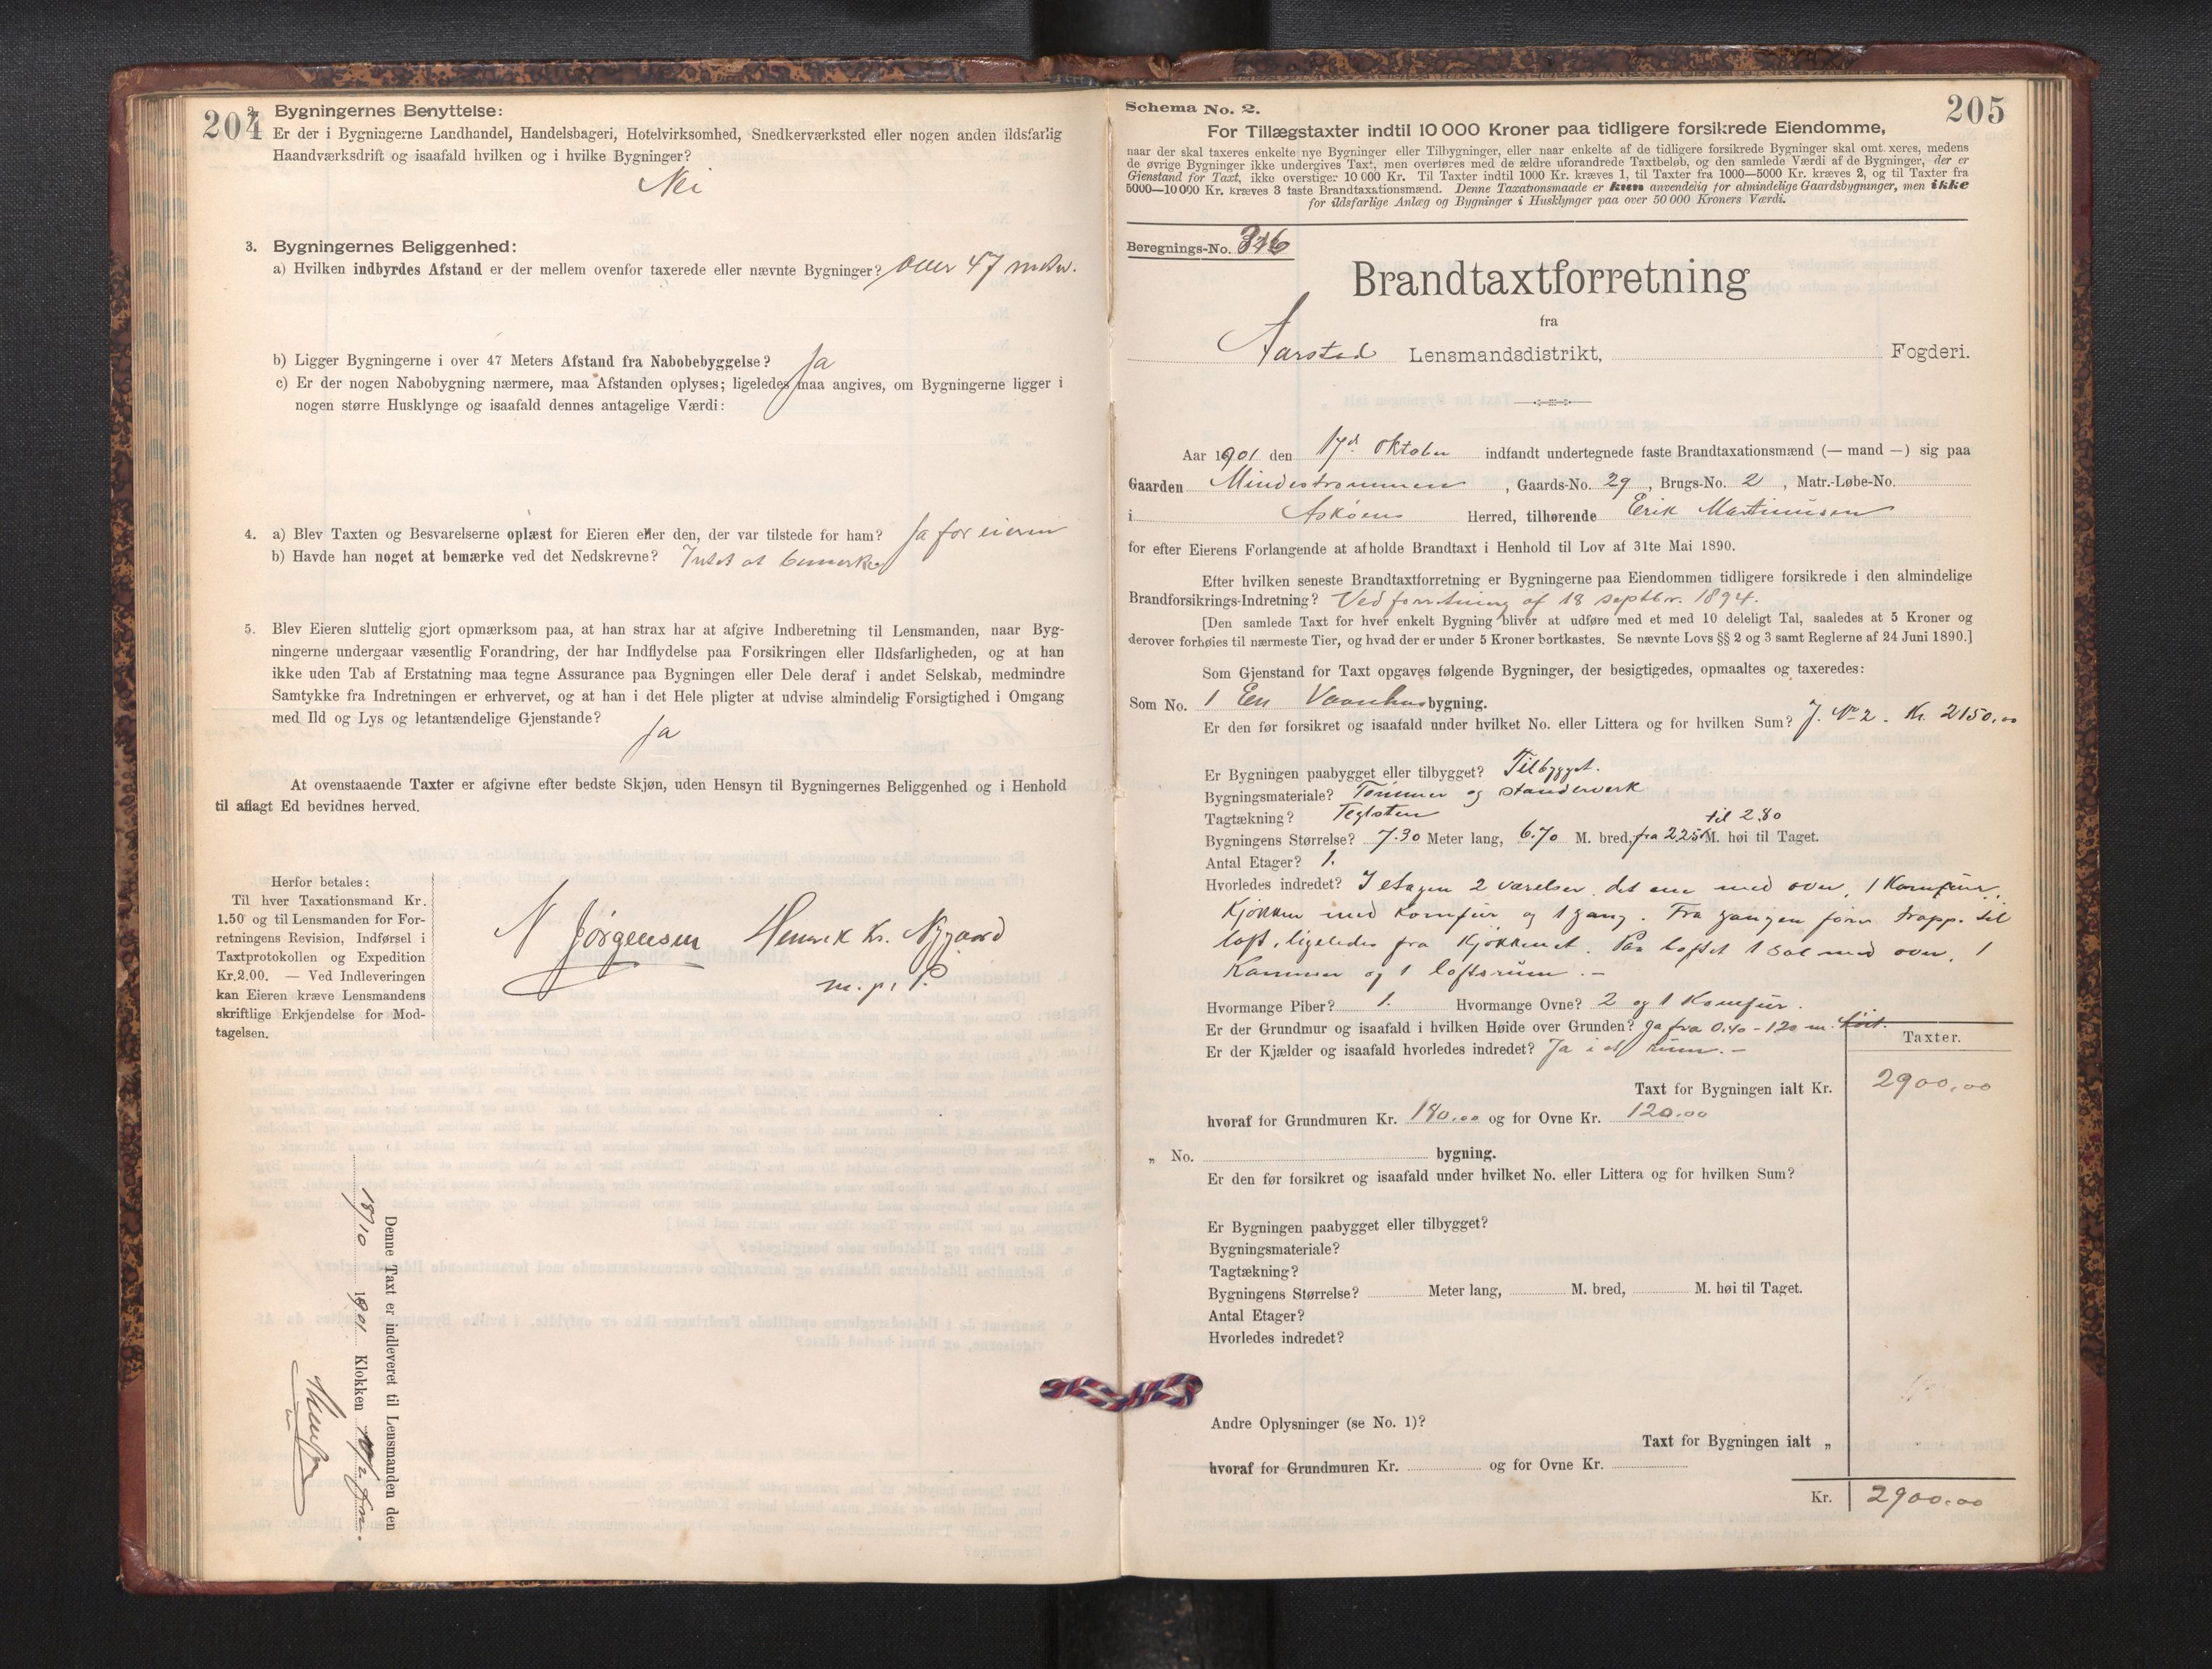 204
2. Bygningernes Benyttelse:
Er der i Bygningerne Landhandel, Handelsbageri, Hotelvirksomhed, Snedkerværksted eller nogen anden ildsfarlig
Haandværksdrift og isaafald hvilken og i hvilke Bygninger?
Nei
3. Bygningernes Beliggenhed:
a) Hvilken indbyrdes Afstand er der mellem ovenfor taxerede eller nævnte Bygninger? Over 47 meter.
b) Ligger Bygningerne i over 47 Meters Afstand fra Nabobebyggelse? Ja
c) Er der nogen Nabobygning nærmere, maa Afstanden oplyses; ligeledes maa angives, om Bygningerne ligger i
nogen større Husklynge og isaafald dennes antagelige Værdi:
4. a) Blev Taxten og Besvarelserne oplæst for Eieren eller den, der var tilstede for ham? Ja for eieren
b) Havde han noget at bemærke ved det Nedskrevne? Intet at bemerke
5. Blev Eieren sluttelig gjort opmærksom paa, at han strax har at afgive Indberetning til Lensmanden, naar Byg-
ningerne undergaar væsentlig Forandring, der har Indflydelse paa Forsikringen eller Ildsfarligheden, og at han
ikke uden Tab af Erstatning maa tegne Assurance paa Bygningen eller Dele deraf i andet Selskab, medmindre
Samtykke fra Indretningen er erhvervet, og at han i det Hele pligter at udvise almindelig Forsigtighed i Omgang
med Ild og Lys og letantændelige Gjenstande?
Ja
At ovenstaaende Taxter er afgivne efter bedste Skjøn, uden Hensyn til Bygningernes Beliggenhed og i Henhold
til aflagt Ed bevidnes herved.
Herfor betales:
Til hver Taxationsmand Kr.
1.50 og til Lensmanden for For-
retningens Revision, Indførsel i
Taxtprotokollen og Expedition
Kr.2.00. — Ved Indleveringen
kan Eieren kræve Lensmandens
skriftlige Erkjendelse for Mod-
tagelsen.
N Jørgensen Henrik Kr. Nygaard
m. p. P.
Denne Taxt er indleveret til Lensmanden den
18/10 1901 Klokken
205
Schema No. 2.
For Tillægstaxter indtil 10 000 Kroner paa tidligere forsikrede Eiendomme,
naar der skal taxeres enkelte nye Bygninger eller Tilbygninger, eller naar enkelte af de tidligere forsikrede Bygninger skal omtaxeres, medens
de øvrige Bygninger ikke undergives Taxt, men overføres med de ældre uforandrede Taxtbeløb, og den samlede Værdi af de Bygninger, der er
Gjenstand for Taxt, ikke overstiger 10 000 Kr. Til Taxter indtil 1000 Kr. kræves 1, til Taxter fra 1000—5000 Kr. kræves 2, og til Taxter fra
5000—10 000 Kr. kræves 3 faste Brandtaxationsmænd. Denne Taxationsmaade er kun anvendelig for almindelige Gaardsbygninger, men ikke
for ildsfarlige Anlæg og Bygninger i Husklynger paa over 50 000 Kroners Værdi.
Beregnings-No. 346
Brandtaxtforretning
fra
Aarstad Lensmandsdistrikt, Fogderi.
Aar 1901 den 17d Oktober indfandt undertegnede faste Brandtaxationsmænd (— mand —) sig paa
Gaarden Mindestrømmen, Gaards-No. 29, Brugs-No. 2, Matr.-Løbe-No.
i Askøens Herred, tilhørende Erik Martinusen
for efter Eierens Forlangende at afholde Brandtaxt i Henhold til Lov af 31te Mai 1890.
Efter hvilken seneste Brandtaxtforretning er Bygningerne paa Eiendommen tidligere forsikrede i den almindelige
Brandforsikrings-Indretning? Ved forretning af 18 septbr. 1894.
[Den samlede Taxt for hver enkelt Bygning bliver at udføre med et med 10 deleligt Tal, saaledes at 5 Kroner og
derover forhøies til nærmeste Tier, og hvad der er under 5 Kroner bortkastes. Se nævnte Lovs §§ 2 og 3 samt Reglerne af 24 Juni 1890.]
Som Gjenstand for Taxt opgaves følgende Bygninger, der besigtigedes, opmaaltes og taxeredes:
Som No. 1 En Vaanhusbygning.
Er den før forsikret og isaafald under hvilket No. eller Littera og for hvilken Sum? J. No 2. Kr. 2150,00
Er Bygningen paabygget eller tilbygget? Tilbygget.
Bygningsmateriale? Tømmer og standerverk
Tagtækning? Teglsten
til 2.80
Bygningens Størrelse? 7.30 Meter lang, 6.70 M. bred, fra 2.25 M. høi til Taget.
Antal Etager? 1.
Hvorledes indredet? I etagen 2 værelser det ene med oven, 1 Komfur,
Kjøkken med komfur og 1 gang. Fra gangen fører trapp. til
loft, ligeledes fra Kjøkkenet. Paa loftet 1 sal med oven, 1
Kammer og 1 loftsrum. –
Hvormange Piber? 1. Hvormange Ovne? 2 og 1 Komfur.
Er der Grundmur og isaafald i hvilken Høide over Grunden? Ja fra 0.40 – 1.20 m.
Er der Kjælder og isaafald hvorledes indredet? Ja i et rum. –
Taxter.
Taxt for Bygningen ialt Kr. 2900,00
hvoraf for Grundmuren Kr. 180,00 og for Ovne Kr. 120,00
„ No. bygning.
Er den før forsikret og isaafald under hvilket No. eller Littera og for hvilken Sum?
Er Bygningen paabygget eller tilbygget?
Bygningsmateriale?
Tagtækning?
Bygningens Størrelse? Meter lang, M. bred, M. høi til Taget.
Antal Etager?
Hvorledes indredet?
Andre Oplysninger (se No. 1)?
Taxt for Bygningen ialt „
hvoraf for Grundmuren Kr. og for Ovne Kr.
Kr. 2900,00